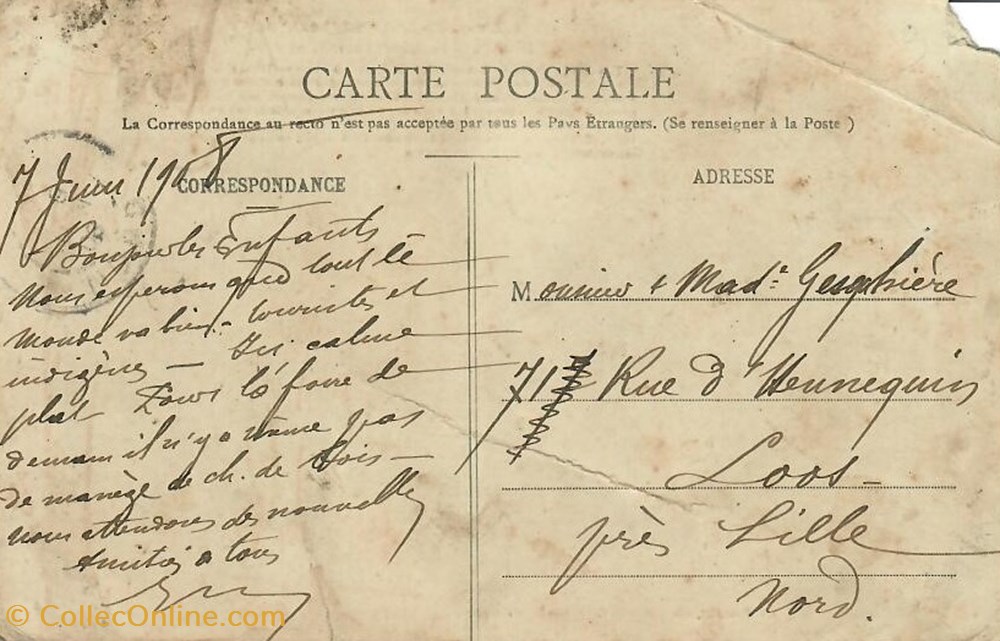 CARTE POSTALE
La Correspondance au recto n'est pas acceptée par tous les Pays Etrangers. (Se renseigner à la Poste )
CORRESPONDANCE
7 Juin 1908
Bonjour les Enfants
Nous esperons que tout le
monde va bien - touristes et
indigènes - Ici calme
plat Pour la foire de
demain il n'y a même pas
de manège de ch. de bois -
nous attendons des nouvelles
Amitiés a tous
ADRESSE
Monsieur & Mad.e
71 Rue d'Hennequin
Loos -
près Lille
Nord.
© CollecOnline.com